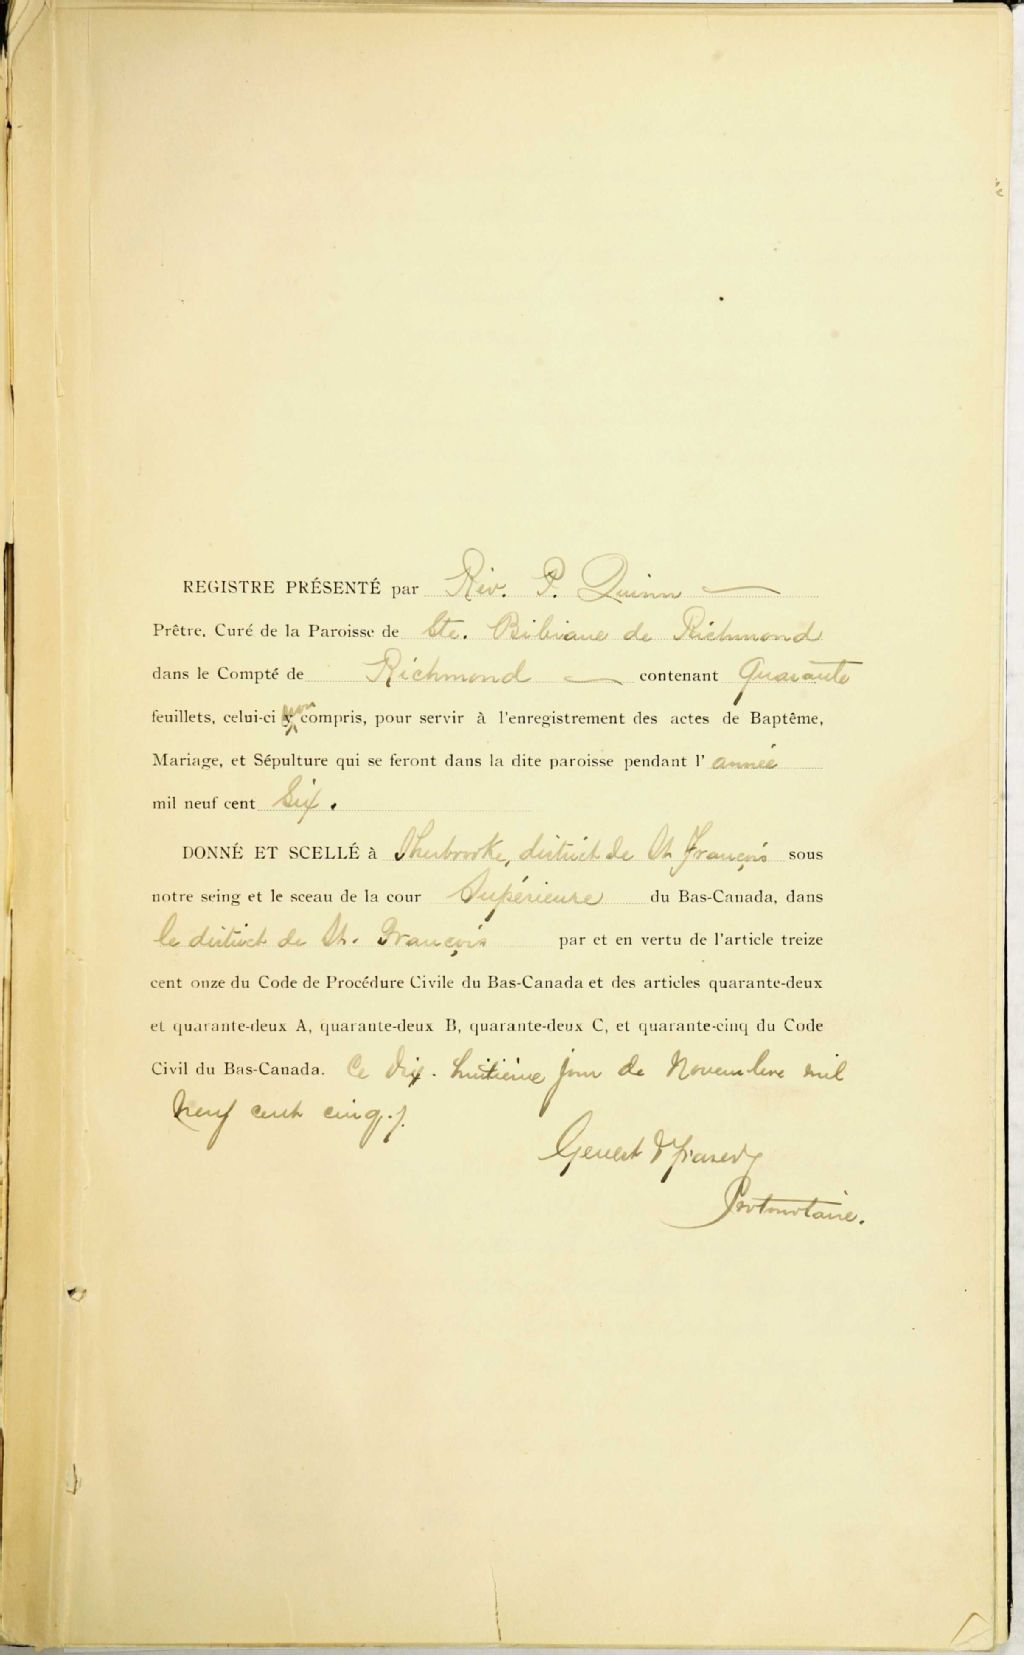 REGISTRE PRÉSENTÉ par Rév. P. Quinn
Prêtre, Curé de la Paroisse de Ste. Bibiane de Richmond
dans le Compté de Richmond contenant Quarante
feuillets, celui-ci non compris, pour servir à l'enregistrement des actes de Baptême,
Mariage, et Sépulture qui se feront dans la dite paroisse pendant l'année
mil neuf cent Six.
DONNÉ ET SCELLÉ à Sherbrooke, district de St François sous
notre seing et le sceau de la cour Supérieure du Bas-Canada, dans
le district de St. François par et en vertu de l'article treize
cent onze du Code de Procédure Civile du Bas-Canada et des articles quarante-deux
et quarante-deux A, quarante-deux B, quarante-deux C, et quarante-cinq du Code
Civil du Bas-Canada. Ce dix-huitième jour de Novembre mil
neuf cent cinq./.
Genest & Fraser
Protonotaire.